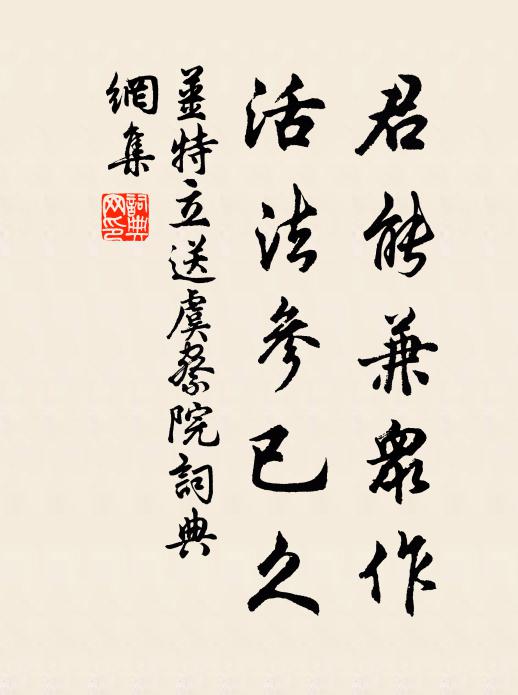 君能兼眾作
活法參已久
姜特立送虞察院詞典
網集
詞典
网印